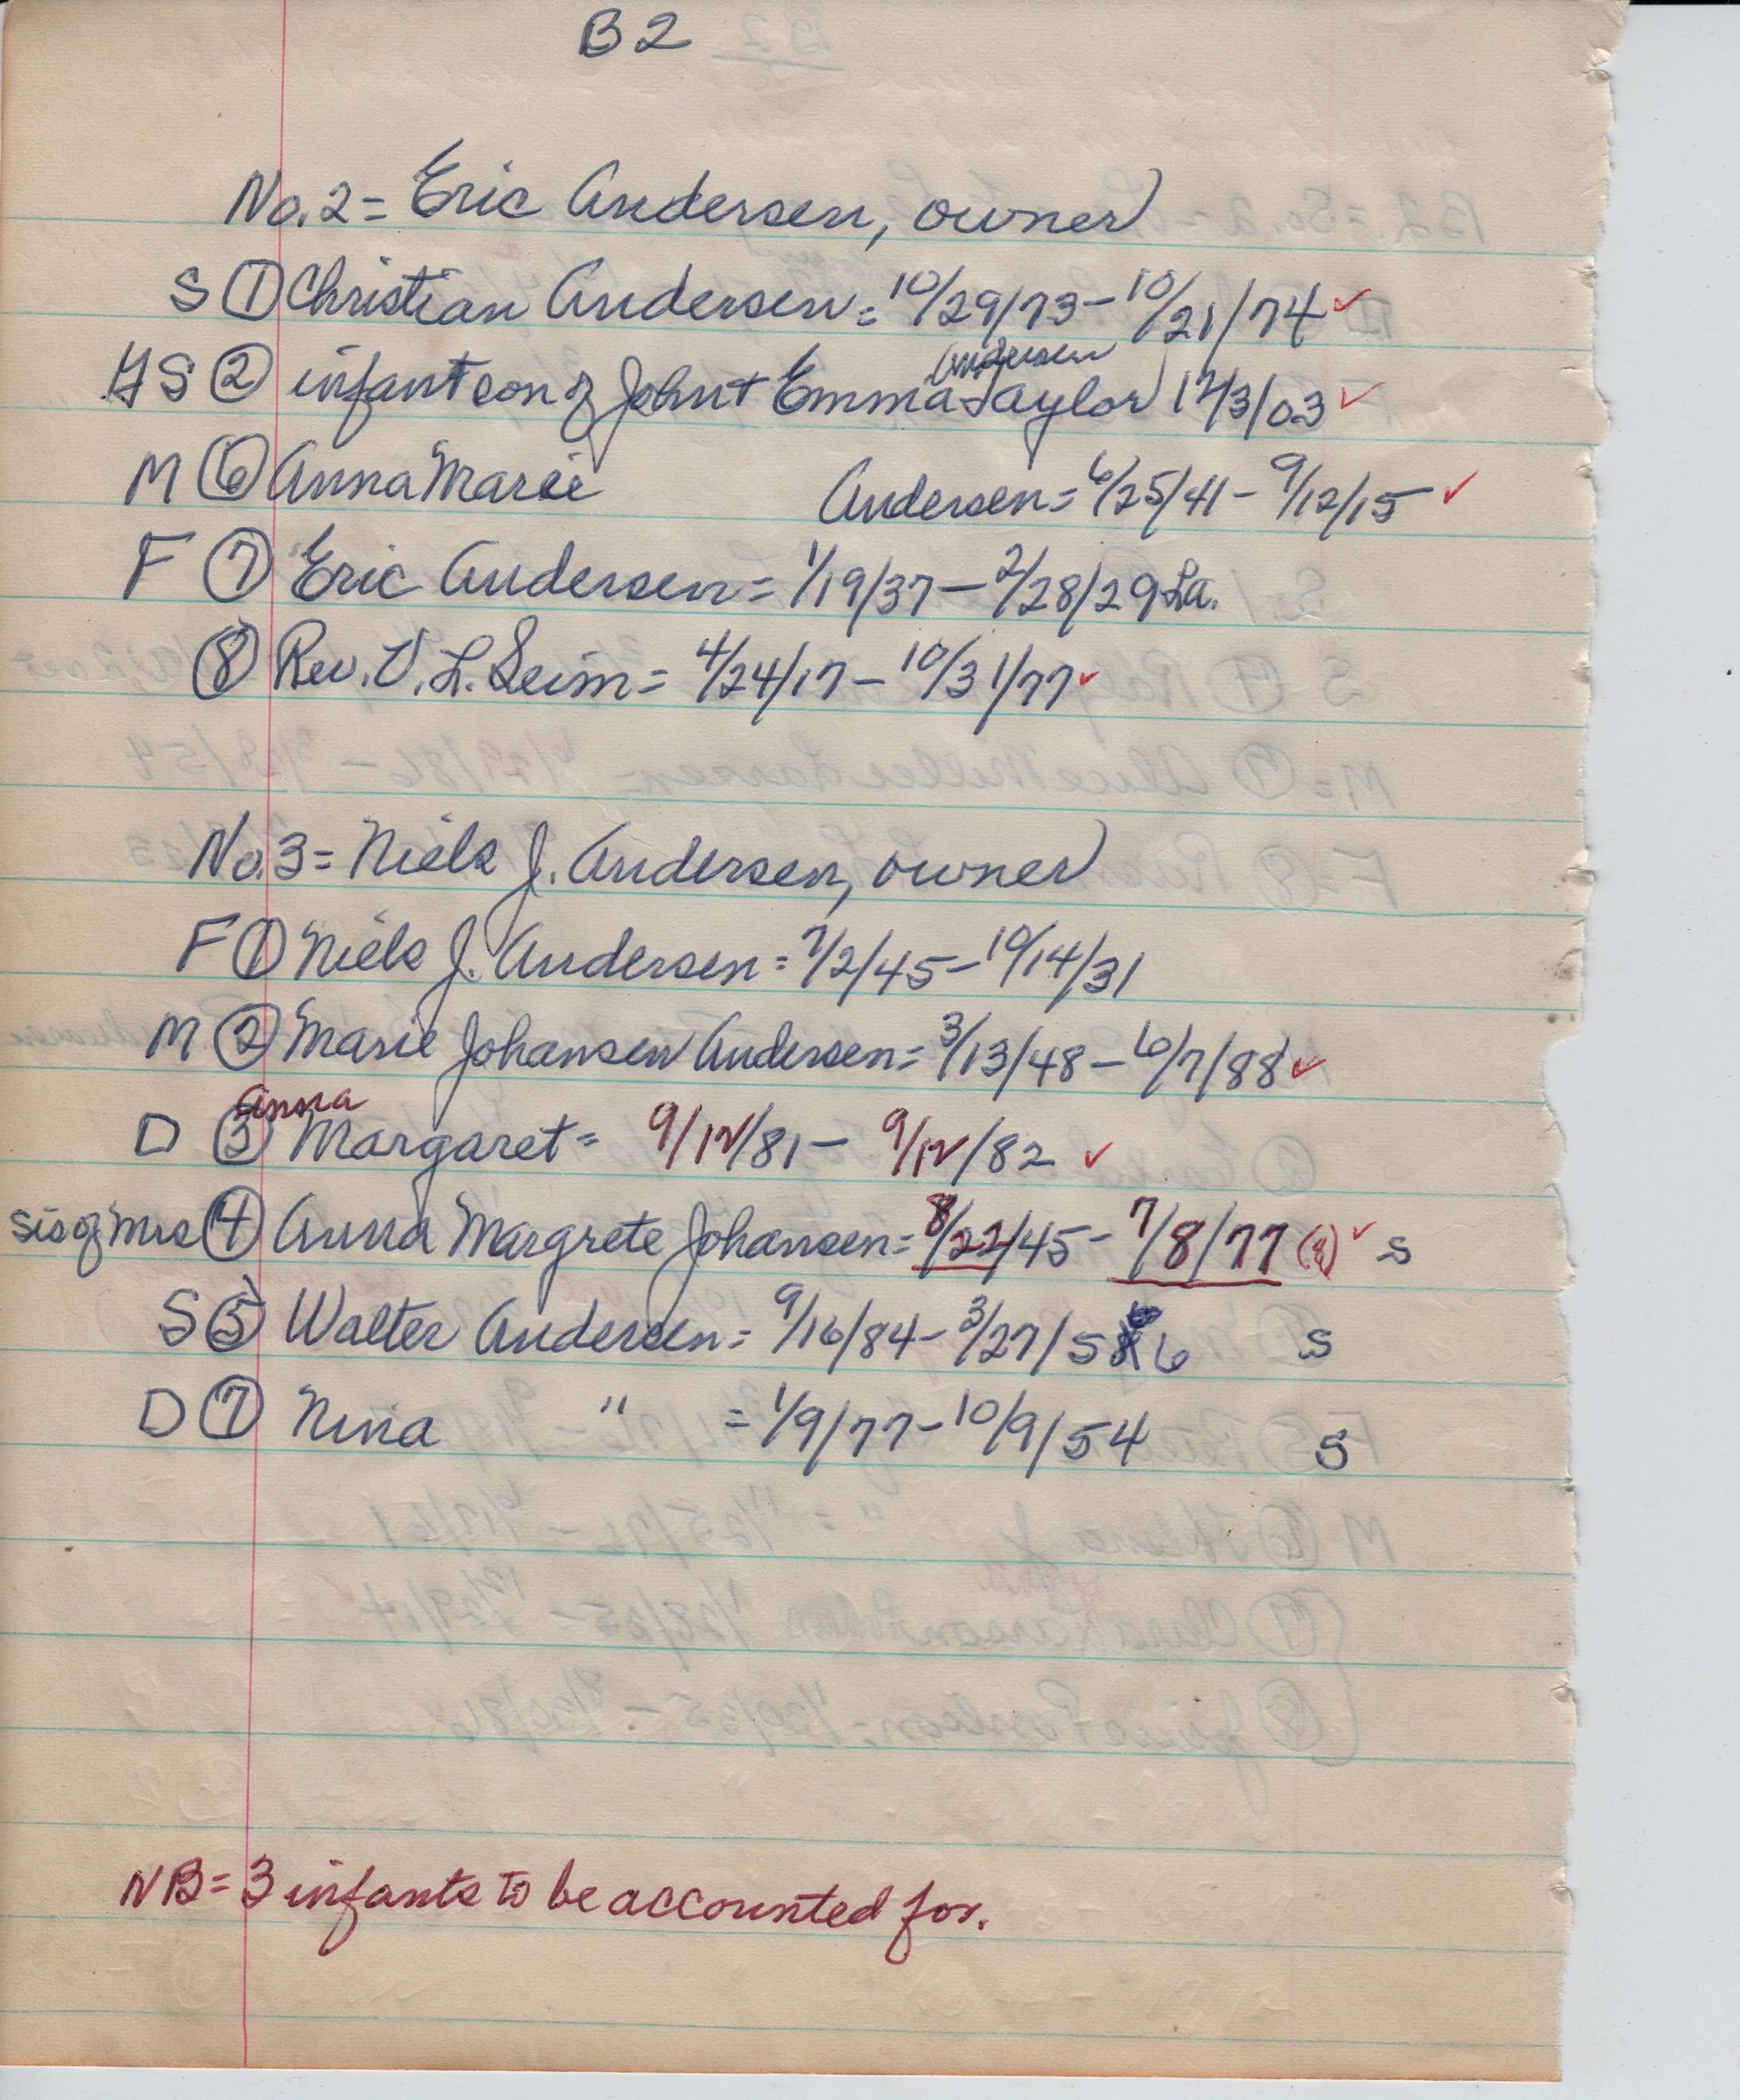 B2
No. 2 = Eric Andersen, owner
S ① Christian Andersen = 10/29/73 - 10/21/74 ✓
GS ② infant son of John + Emma Andersen Taylor 12/3/03 ✓
M ⑥ Anna Marie Andersen = 6/25/41 - 9/12/15 ✓
F ⑦ Eric Andersen = 1/19/37 - 2/28/29 La.
⑧ Rev. V. L. Seim = 4/24/17 - 10/31/77 ✓
No. 3 = Niels J. Andersen, owner
F ① Niels J. Andersen = 7/2/45 - 10/14/31
M ② Marie Johansen Andersen = 3/13/48 - 6/7/88 ✓
D ③ Anna Margaret = 9/12/81 - 9/12/82 ✓
sis of Mrs ④ Anna Margrete Johansen = 8/22/45 - 7/8/77 ✓ S
S ⑤ Walter Andersen = 9/16/84 - 3/27/56 S
D ⑦ Nina " = 1/9/77 - 10/9/54 S
NB = 3 infants to be accounted for.